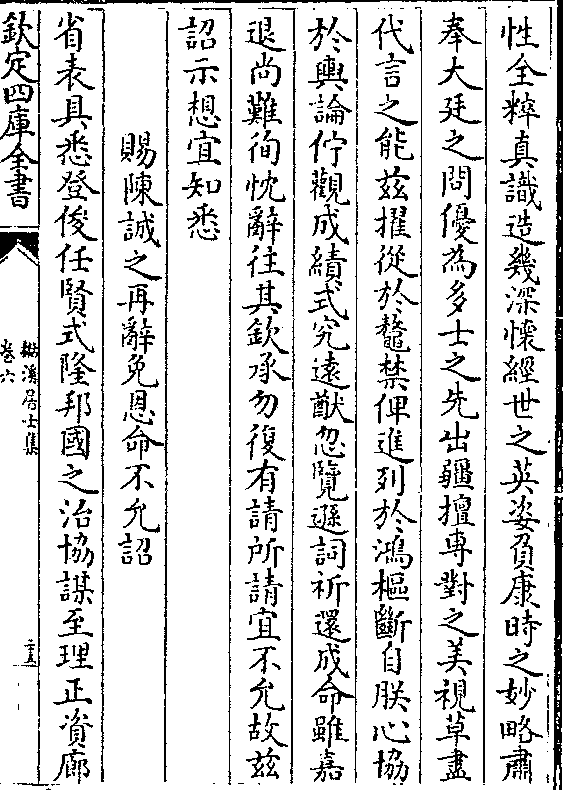 性全粹真識造幾深懷經世之英姿負康時之妙略肅
奉大廷之問優為多士之先出疆擅専對之美視草盡
代言之能茲擢從於鼇禁俾進列於鴻樞斷自朕心協
於輿論佇觀成績式究遠猷忽覽遜詞祈還成命雖嘉
退尚難徇忱辭往其欽承勿復有請所請宜不允故茲
詔示想宜知悉
賜陳誠之再辭免恩命不允詔
省表具悉登俊任賢式隆邦國之治協謀至理正資廊
欽定四庫全書
楳溪居士集
卷六